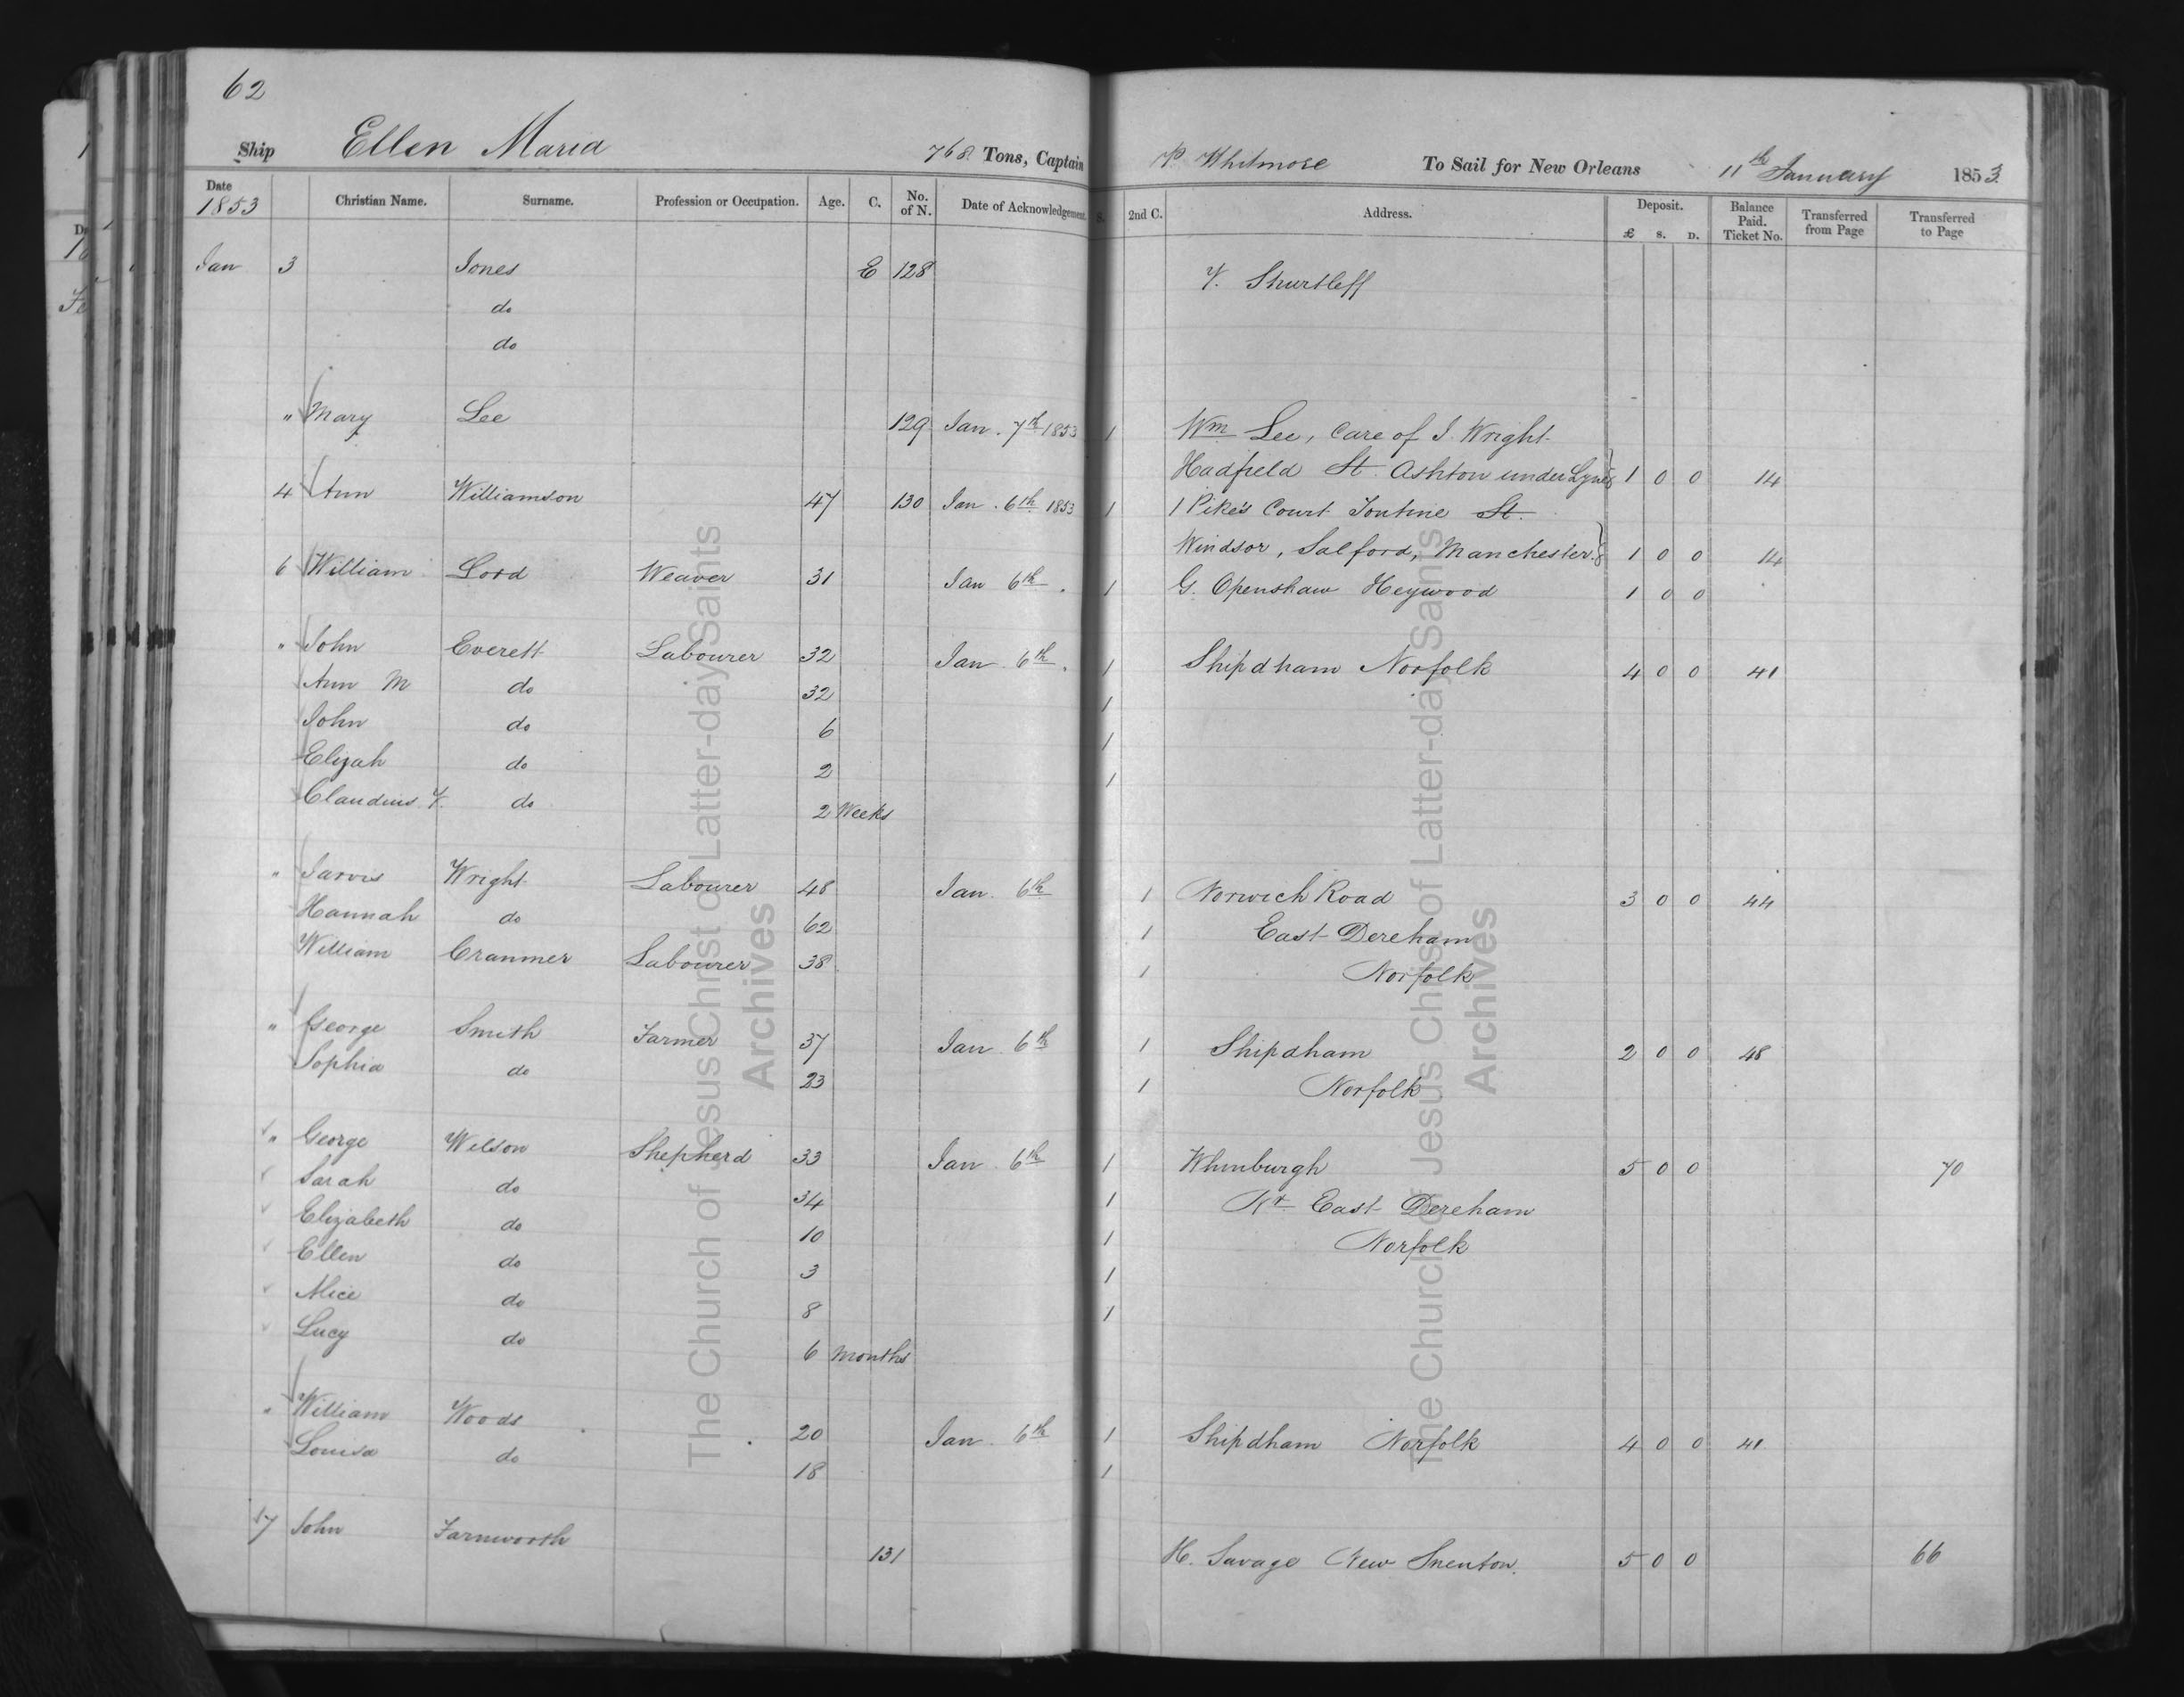 62
Ship Ellen Maria 768 Tons, Captain Whitmore To Sail for New Orleans 11th January 1853
Date 1853 Christian Name. Surname. Profession or Occupation. Age. C. No. of N. Date of Acknowledgement. S. 2nd C. Address. Deposit. £ S. D. Balance Paid. Ticket No. Transferred from Page Transferred to Page
Jan 3 Jones E 128 V. Shurtleff
do
do
" Mary Lee 129 Jan. 7th 1853 1 Wm Lee, Care of J. Wright
Hadfield St. Ashton under Lyne 1 0 0 14
4 Ann Williamson 47 130 Jan. 6th 1853 1 1 Pikes Court Tontine St.
Windsor, Salford, Manchester. 1 0 0 14
6 William Lord Weaver 31 Jan 6th. 1 G. Openshaw Heywood 1 0 0
" John Everett Labourer 32 Jan. 6th. 1 Shipdham Norfolk 4 0 0 41
Ann M do 32 1
John do 6 1
Elijah do 2 1
Claudius V. do 2 Weeks
" Jarvis Wright Labourer 48 Jan. 6th 1 Norwich Road 3 0 0 44
Hannah do 62 1 East Dereham
William Cranmer Labourer 38 1 Norfolk
" George Smith Farmer 37 Jan 6th 1 Shipdham 2 0 0 48
Sophia do 23 1 Norfolk
" George Wilson Shepherd 33 Jan. 6th 1 Whinburgh 5 0 0 70
Sarah do 34 1 Nr East Dereham
Elizabeth do 10 1 Norfolk
Ellen do 3 1
Alice do 8 1
Lucy do 6 Months
" William Woods 20 Jan. 6th 1 Shipdham Norfolk 4 0 0 41
Louisa do 18 1
17 John Farnworth 131 H. Savage New Snenton. 5 0 0 66
The Church of Jesus Christ of Latter-day Saints
Archives
The Church of Jesus Christ of Latter-day Saints
Archives